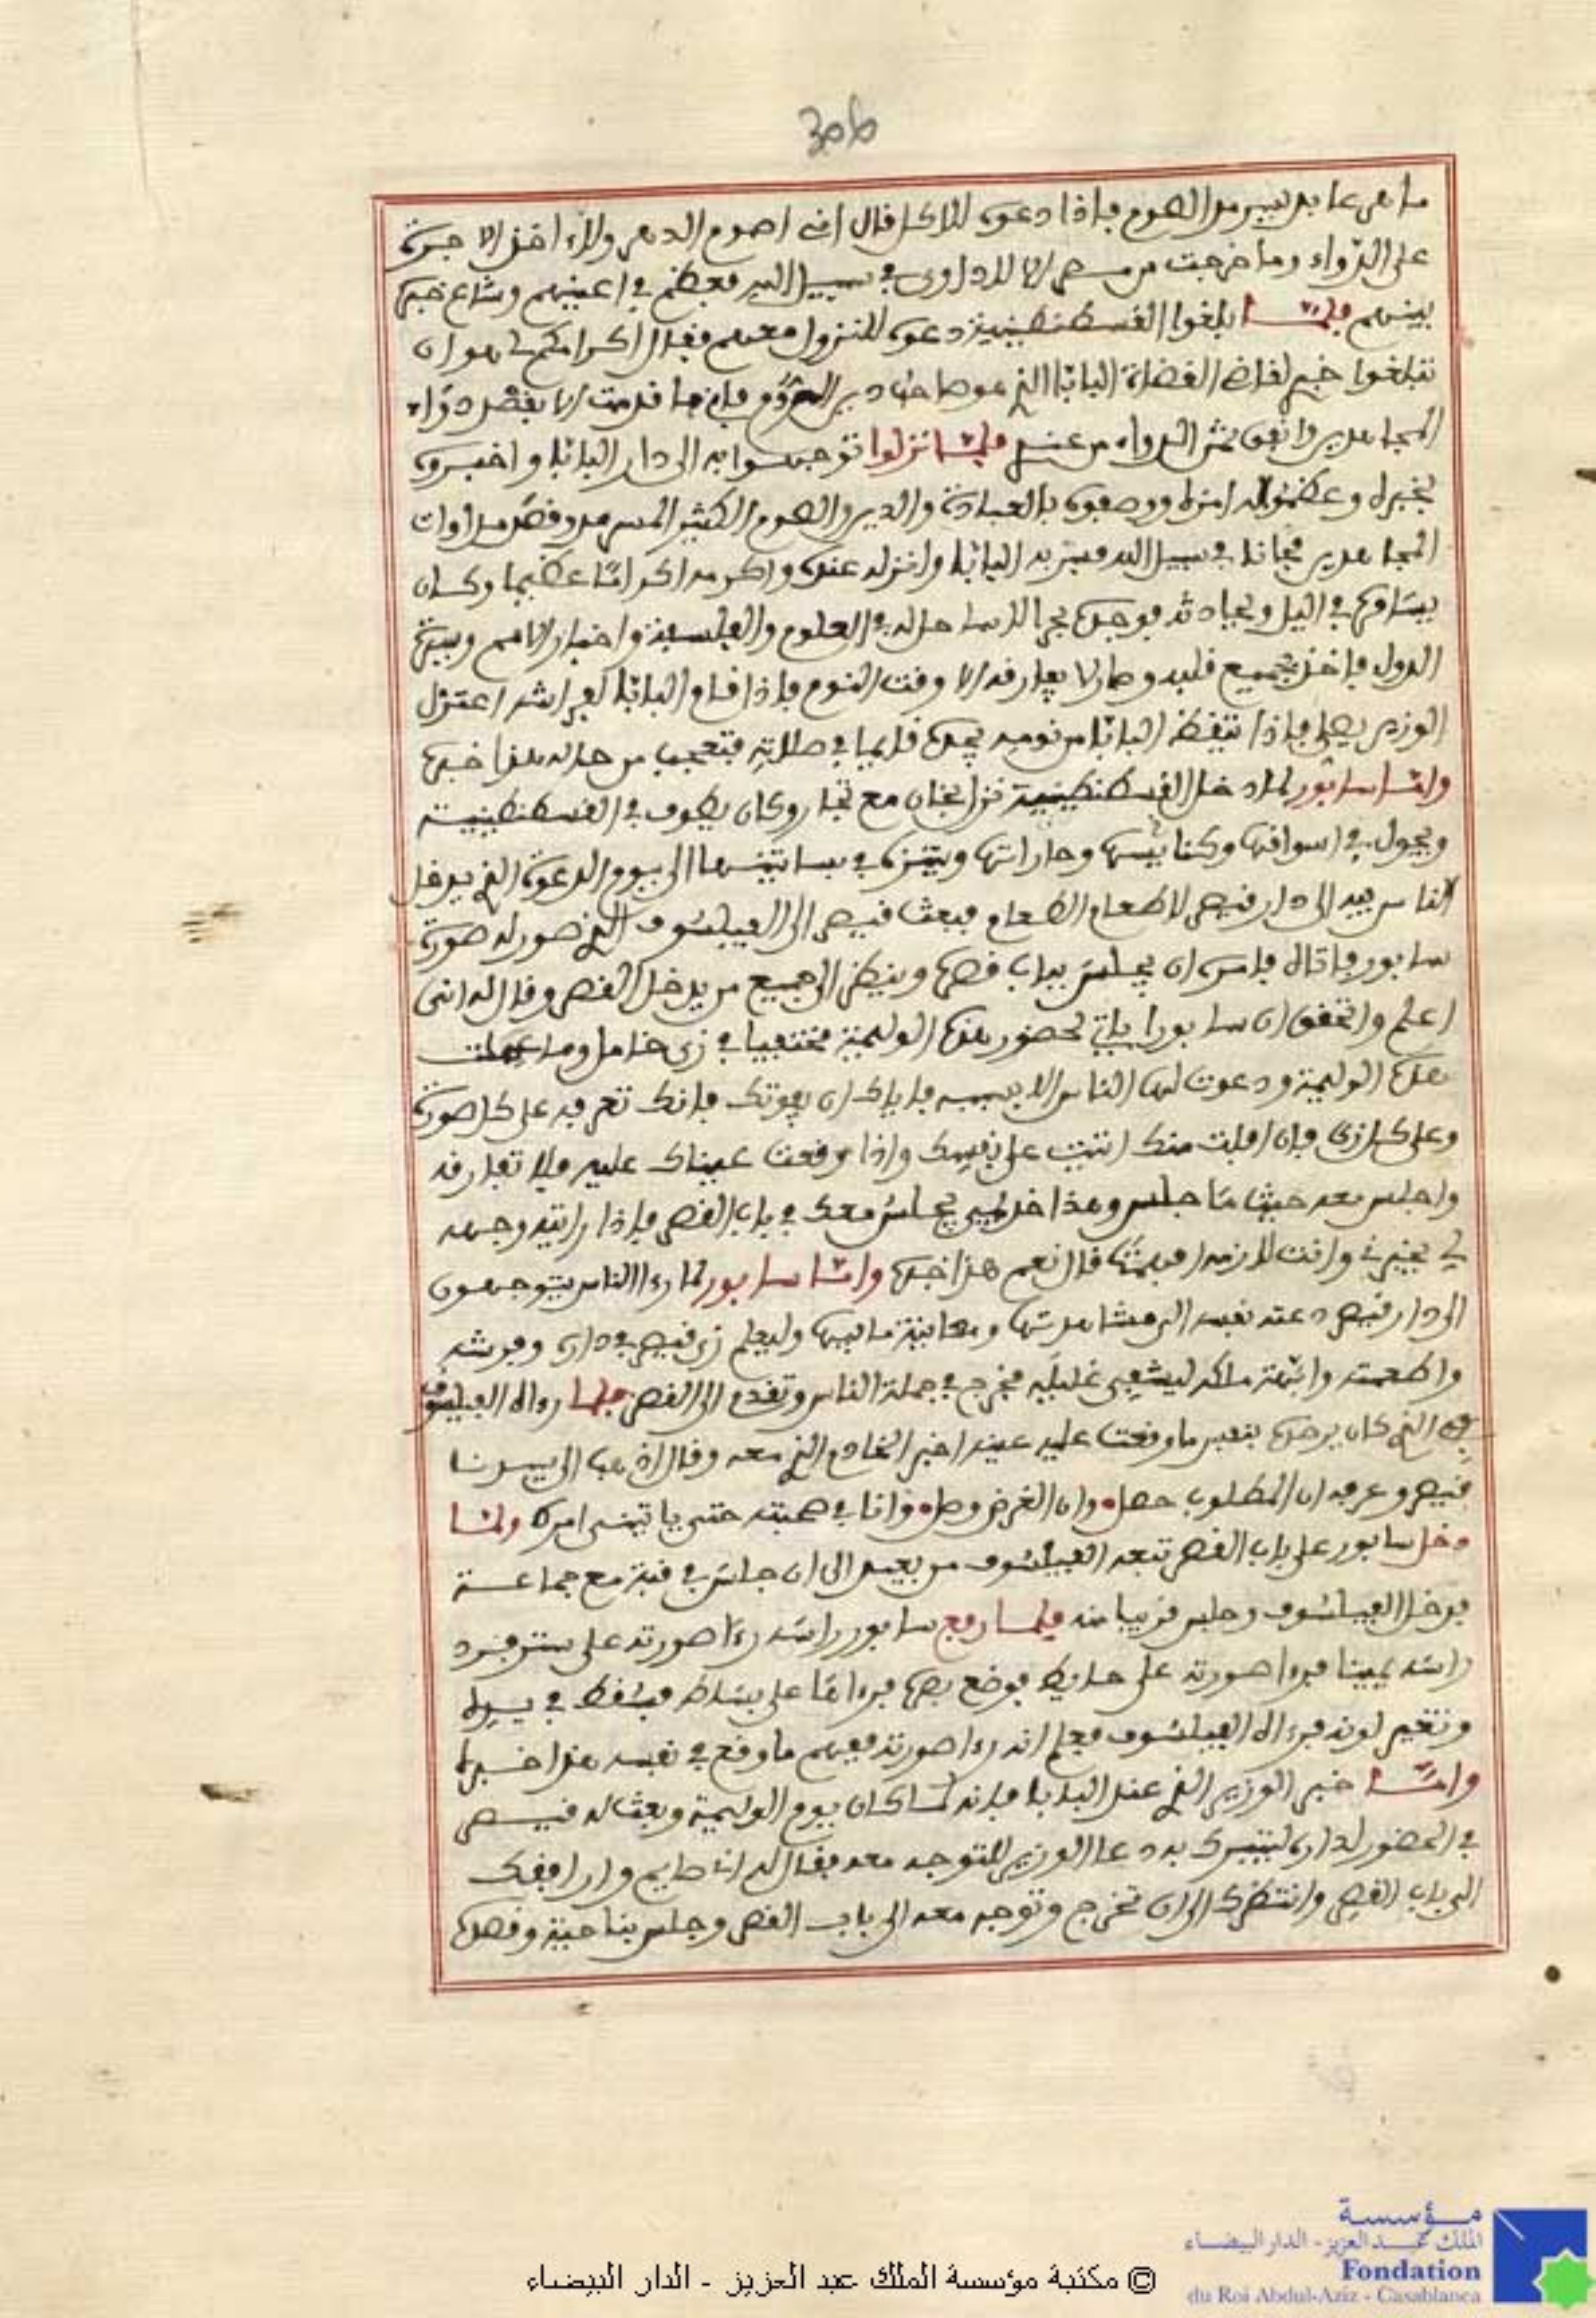 ما هر عابد ليس من القوم فاذا دعوه للاكل قال اني اصوم الدهر ولا ءاخذ الاجرة
على الدواء وما خرجت من مصر الا للداوي في سبيل الله فعظم في اعينهم وشاع خبره
بينهم فلما بلغوا القسطنطينية دعوه للنزول معهم فقال اكرامكم لي هو ان
تبلغوا خبري لقاضي القضاة البابا الذي هو صاحب دير الروم فاني ما قدمت الا بقصد دواء
المجاهدين وانفق ثمن الدواء من عندي فلما نزلوا توجهوا به الى دار البابا واخبروه
بخبره وعظموا له امره ووصفوه بالعبادة والدين والصوم الكثير المسرمد وقصد مداوات
المجاهدين مجانا في سبيل الله فسر به البابا وانزله عنده واكرمه اكراما عظيما وكان
يسامره في اليل ويحادثه فوجده بحرا لا ساحل له في العلوم والفلسفة واخبار الامم وسيرة
الدول فاخذ بجميع قلبه وصار لا يفارقه الا وقت النوم فاذا قام البابا لفراشه اعتزل
الوزير يصلي فاذا تيقظ البابا من نومه يجده قايما في صلاته فتعجب من حاله هذا خبره
واما سابور لما دخل القسطنطينية نزل بخان مع تجار وكان يطوف في القسطنطينية
ويجول في اسواقها وكنائسها وحاراتها ويتنزه في بساتينها الى يوم الدعوة الذي يدخل
الناس فيه الى دار قيصر لاطعام الطعام فبعث قيصر الى الفيلسوف الذي صور له صورة
سابور فاتاه فامره ان يجلس بباب قصره وينظر الى جميع من يدخل القصر وقال له انني
اعلم واتحقق ان سابورا ياتي لحضور هذه الوليمة مختفيا في زي خامل وما عملت
هذه الوليمة ودعوت لها الناس الا بسببه فاياك ان يفوتك فانك تعرفه على كل صورة
وعلى كل زي فان افلت منك اتيت على نفسك واذا وقعت عيناك عليه فلا تفارقه
واجلس معه حيث ما جلس وهذا خديمي يجلس معك في باب القصر فاذا رايته وجهه
لي يخبرني وانت لازمه افهمت قال نعم هذا خبره واما سابور لما رءا الناس يتوجهون
الى دار قيصر دعته نفسه الى مشاهدتها ومعاينة ما فيها وليعلم زي قيصر في داره وفرشه
واطعمته وابهة ملكه ليشفي غليله فخرج في جملة الناس وتقدم الى القصر فلما رءاه الفيلسوف
الذي كان يرصده بنفس ما وقعت عليه عينه اخبر الخادم الذي معه وقال اذهب الى سيدنا
قيصر وعرفه ان المطلوب حصل وان الغرض وصل وانا في صحبته حتى ياتيني امره ولما
دخل سابور على باب القصر تبعه الفيلسوف من بعيد الى ان جلس في قبة مع جماعة
فدخل الفيلسوف وجلس قريبا منه فلما رفع سابور راسه رءا صورته على ستر فرد
راسه يمينا فرءا صورته على حايط فوضع بصره فرءاها على بساط فسقط في يده
وتغير لونه فرءاه الفيلسوف فعلم انه رءا صورته ففهم ما وقع في نفسه هذا خبره
واما خبر الوزير الذي عند البابا فانه لما كان يوم الوليمة وبعث له قيصر
في الحضور لداره ليتبرك به دعا الوزير للتوجه معه فقال له انا صايم وارافقك
الى باب القصر وانتظرك الى ان تخرج وتوجه معه الى باب القصر وجلس بناحية وقصده
مؤسسة
الملك عبد العزيز - الدار البيضاء
Fondation
du Roi Abdul-Aziz - Casablanca
© مكتبة مؤسسة الملك عبد العزيز - الدار البيضاء